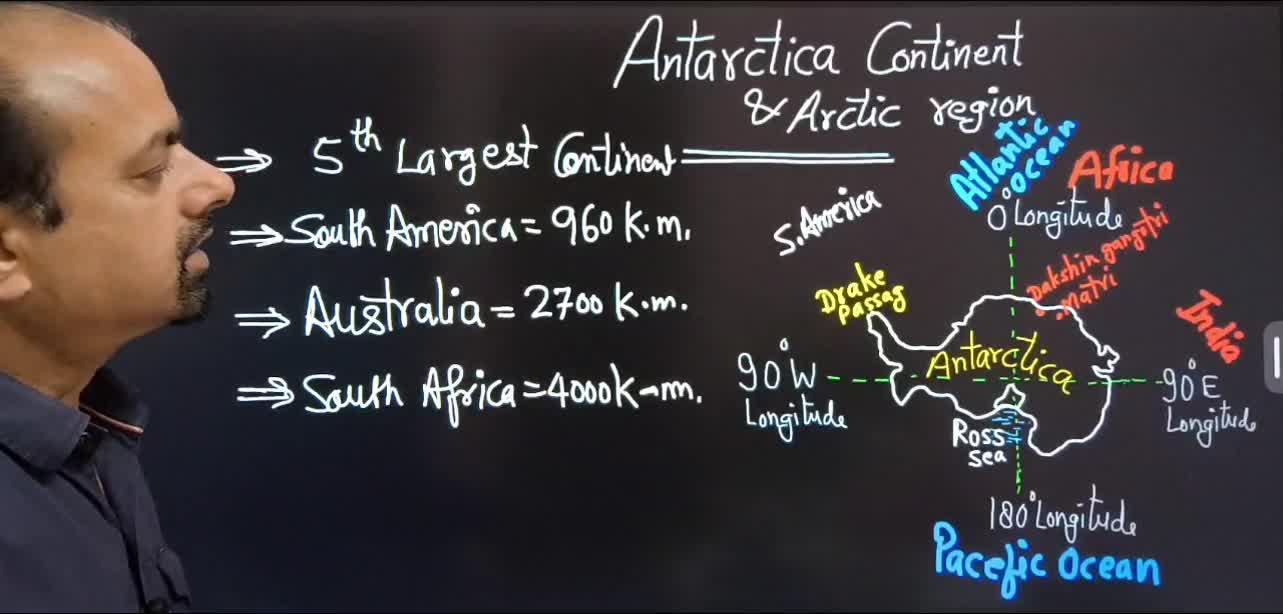 Antarctica Continent
& Arctic region
⇒ 5th Largest Continent
⇒ South America = 960 k.m.
⇒ Australia = 2700 k.m.
⇒ South Africa = 4000k-m.
S. America
Atlantic
ocean
Africa
0° Longitude
Dakshin gangotri
matri
India
Drake
passag
Antarctica
90°W
Longitude
90°E
Longitude
Ross
sea
180° Longitude
Pacefic ocean